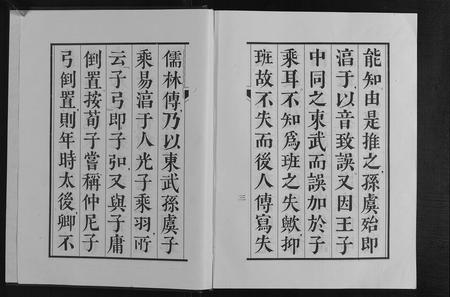 能知由是推之孫虞殆即
淯于以音致誤又因王子
中同之東武而誤加於子
乘耳不知爲班之失歟抑
班故不失而後人傳寫失
三
儒林傳乃以東武孫虞子
乘易淯于人光子乘羽所
云子弓即子弘又與子庸
倒置按荀子嘗稱仲尼子
弓倒置則年時太後卿不